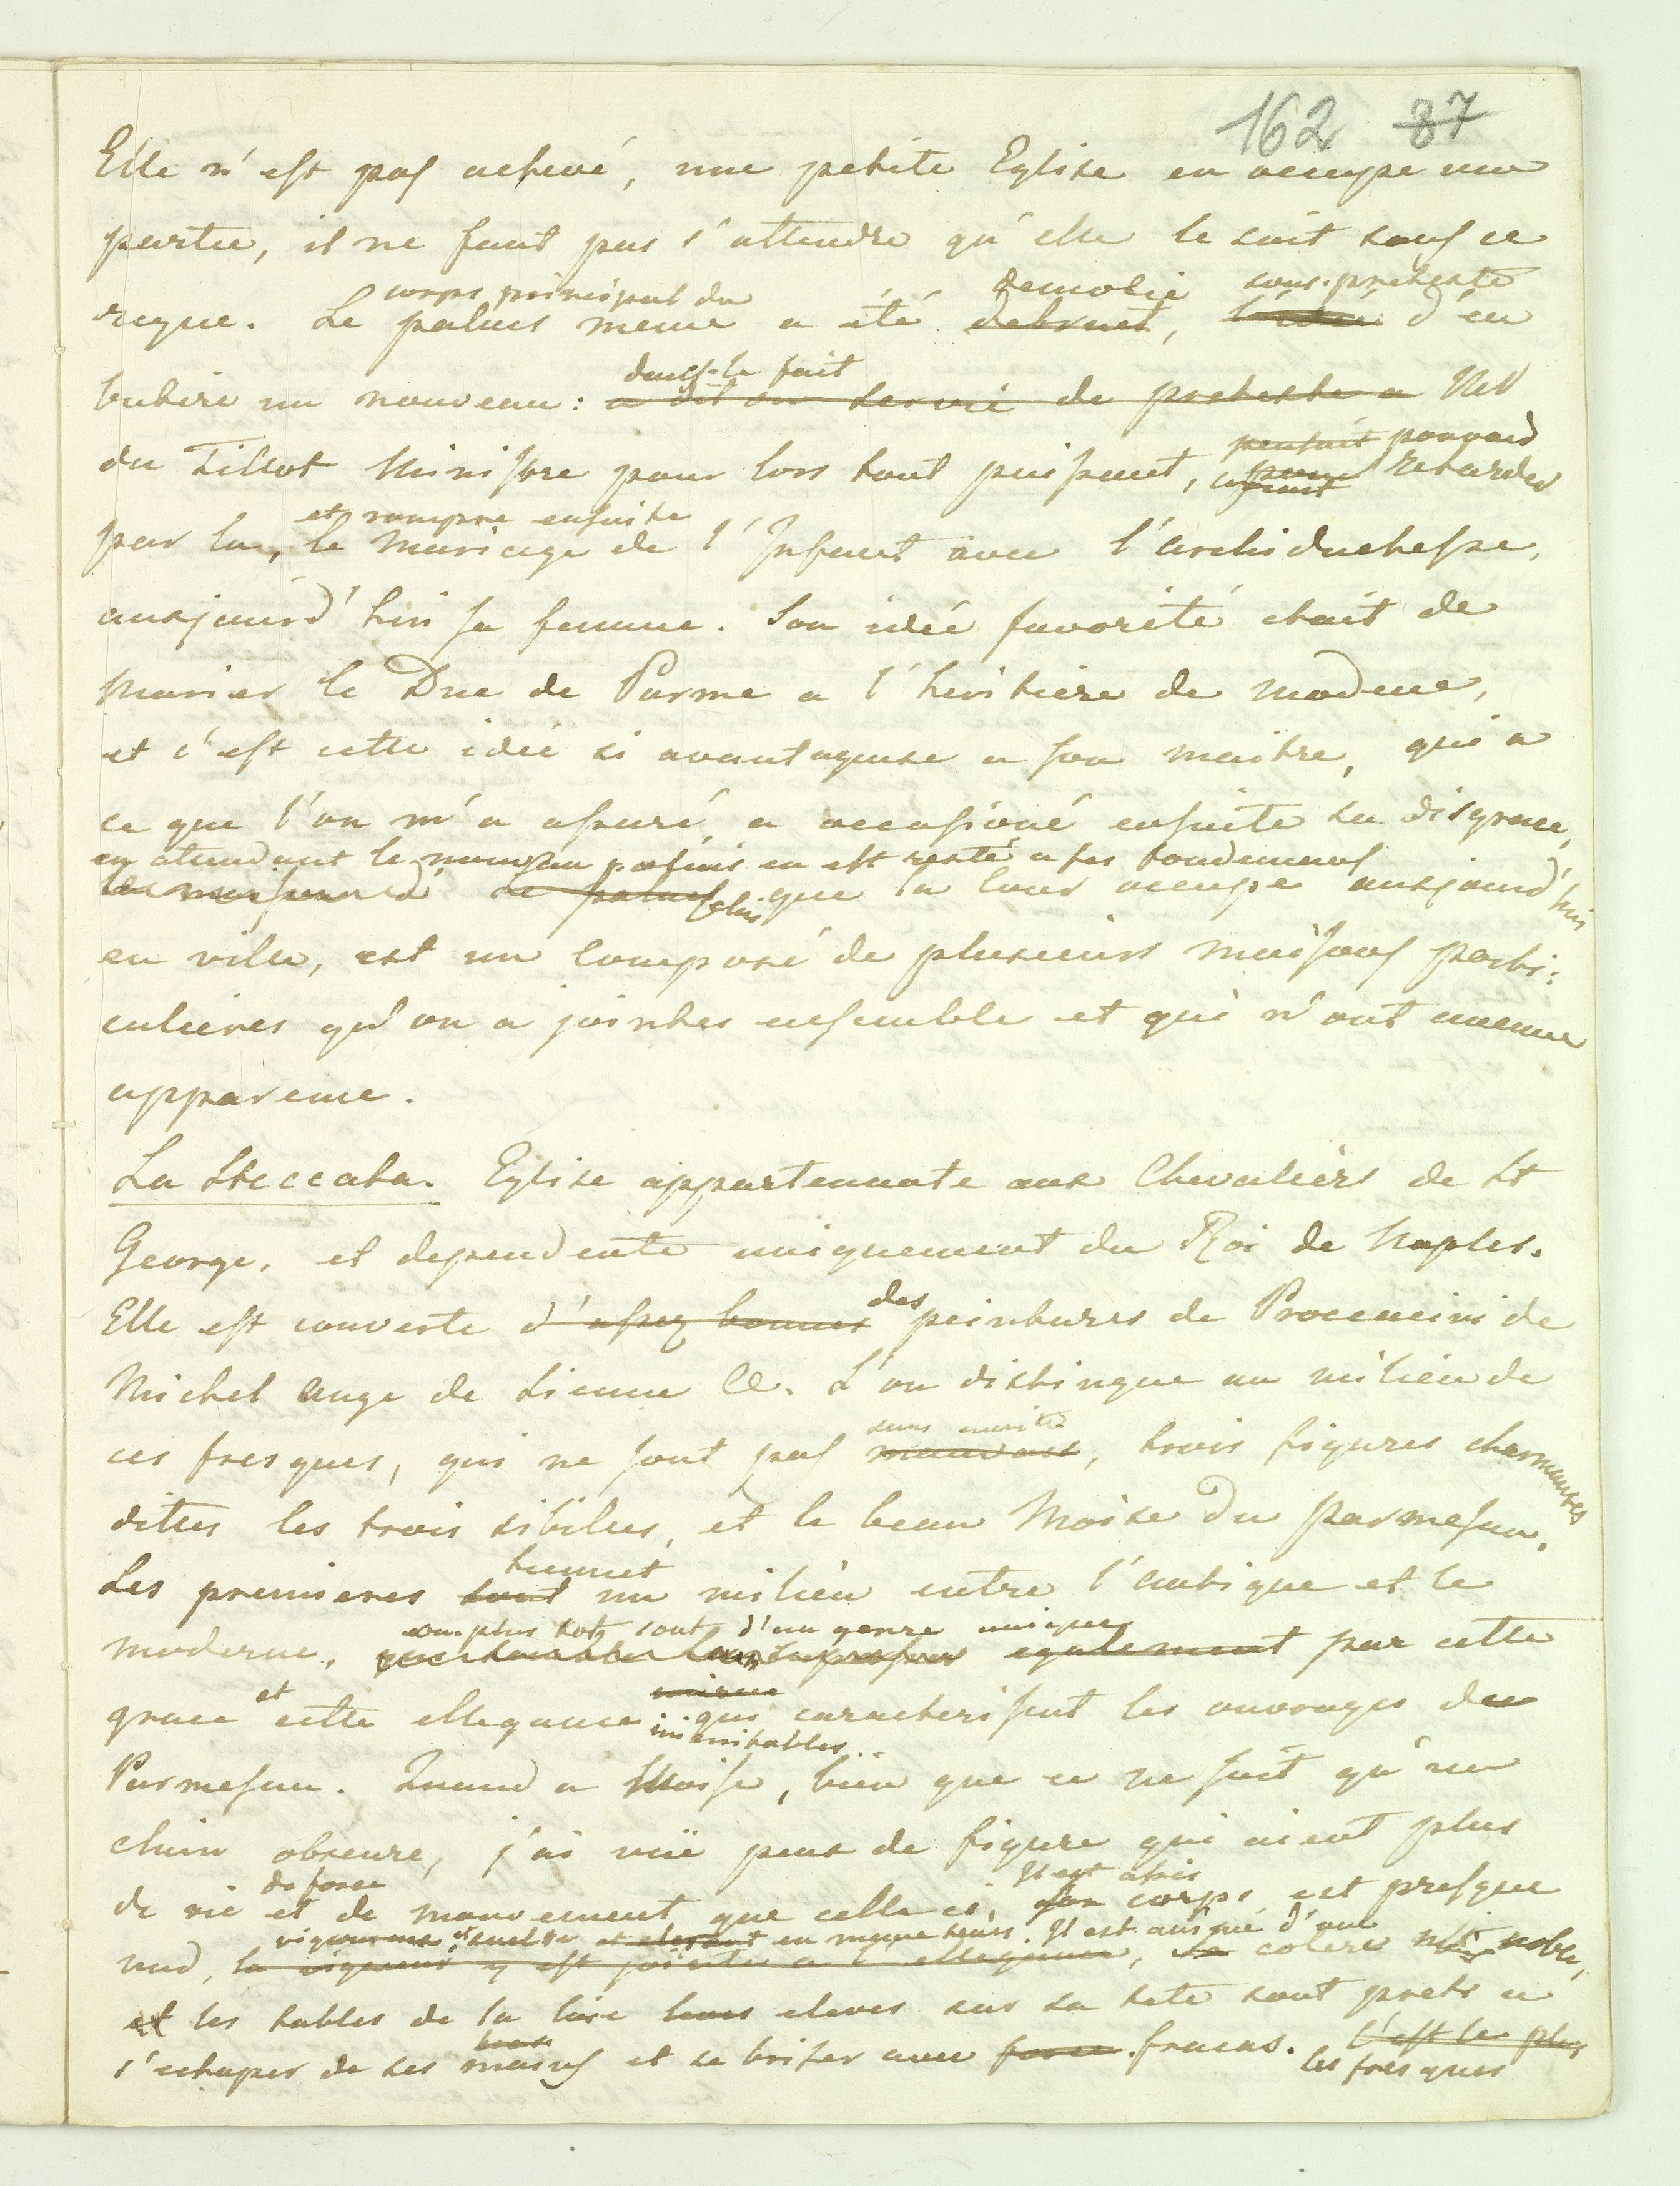 162 87
Elle n'est pas achevé, une petite Eglise en occupe une
partie, il ne faut pas s'attendre qu'elle le soit sous ce
corps principal du demolie sous pretexte
regne. Le palais meme a été detruit, d'en
dans le fait
batire un nouveau: a dit on servie de pretexte a Mr
pensait pouvoir
du Tillot Ministre pour lors tout puissant, retarder
et rompre ensuite
par la, le mariage de l'Infant avec l'archiduchesse,
auxjourd'hui sa femme. Son idée favorite etait de
marier le Duc de Parme a l'heritiere de Modene,
et c'est cette idée si avantageuse a son maitre, qui a
ce que l'on m'a assuré, a occasioné ensuite sa disgrace,
en attendant le nouveau palais en est resté a ses fondemens
le palais celui que la Cour occupe auxjourd'hui
en ville, est un composé de plusieurs maisons parti:
culieres qu'on a jointes ensemble et qui n'ont aucune
apparence.
La Steccata. Eglise appartenante aux Chevaliers de St
George, et dependente uniquement du Roi de Naples.
des
Elle est couverte d'assez bonnes peintures de Procaccini de
Michel Ange de Sienne &. L'on distingue au milieu de
sans merite
ces fresques, qui ne sont pas mauvaises, trois figures charmantes
dittes les trois sibilles, et le beau Moise du parmesan.
tiennent
Les premieres sont un milieu entre l'antique et le
ou plus tot sont d'un genre unique
moderne, egalement par cette
et
grace cette ellegance qui caracterisent les ouvrages du
inimitables
Parmesan. Quand a Moise, bien que ce ne soit qu'un
clair obscure, j'ai vüe peux de figure qui aient plus
de force Il est assis
de vie et de mouvement que celle ci, son corps est presque
vigoureux et suelte et elegant en meme tems. Il est animé d'une
nud, la vigueur y est jointe a l'ellegance, colere noble,
et les tables de la loie eleves sur sa tete sont prets a
bras
s'echaper de ses mains et se briser avec force fracas. C'est le plus
les fresques